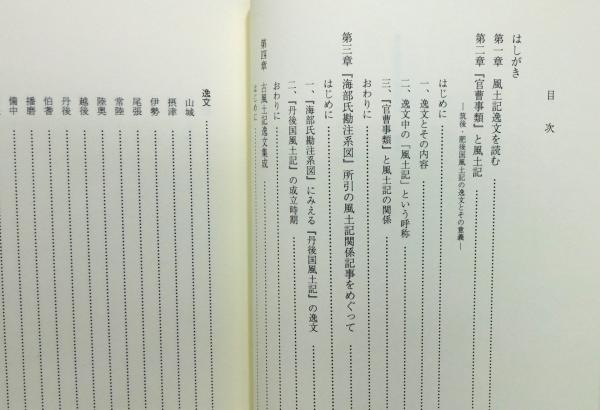 目次
はしがき
第一章　風土記逸文を読む
第二章　『官曹事類』と風土記
―筑後・肥後国風土記の逸文とその意義―
はじめに
一、逸文とその内容
二、逸文中の「風土記」という呼称
三、『官曹事類』と風土記の関係
おわりに
第三章　『海部氏勘注系図』所引の風土記関係記事をめぐって
はじめに
一、『海部氏勘注系図』にみえる『丹後国風土記』の逸文
二、『丹後国風土記』の成立時期
おわりに
第四章　古風土記逸文集成
はじめに
逸文
山城
摂津
伊勢
尾張
常陸
陸奥
越後
丹後
伯耆
播磨
備中